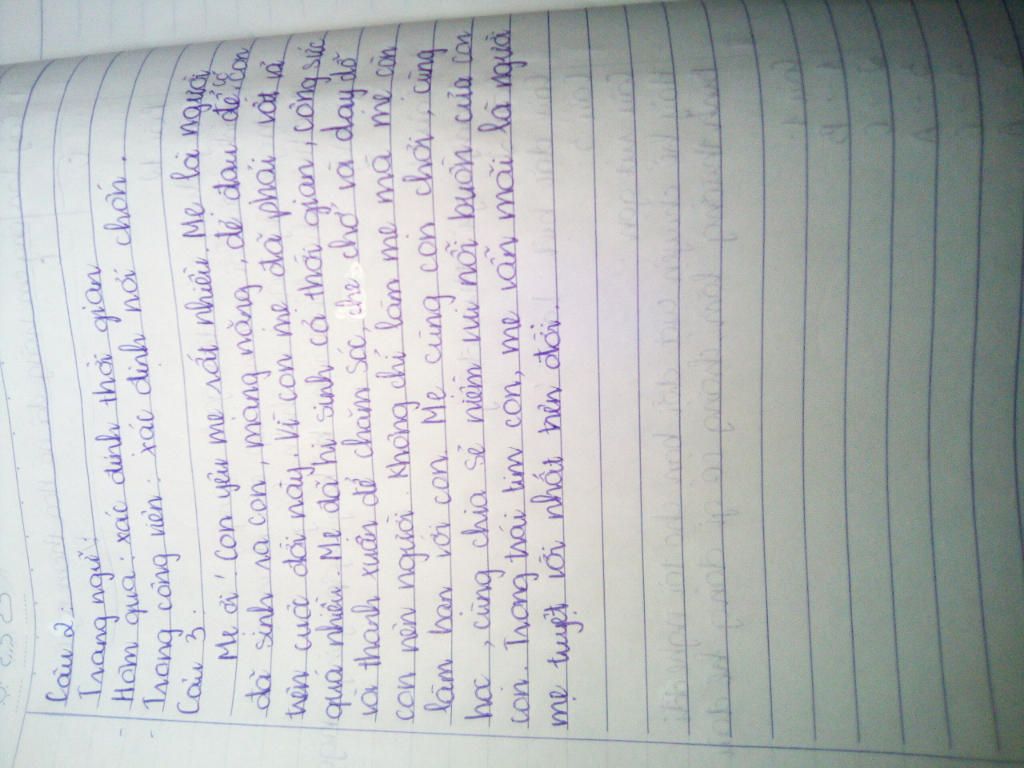 Câu 2:
Trạng ngữ:
- Hôm qua: xác định thời gian
- Trong công viên: xác định nơi chốn.
Câu 3:
Mẹ ơi! Con yêu mẹ rất nhiều. Mẹ là người
đã sinh ra con, mang nặng, đẻ đau để có con
trên cuộc đời này. Vì con mẹ đã phải vất vả
quá nhiều. Mẹ đã hi sinh cả thời gian, công sức
và thanh xuân để chăm sóc, che chở và dạy dỗ
con nên người. Không chỉ làm mẹ mà mẹ còn
làm bạn với con. Mẹ cùng con chơi, cùng
học, cùng chia sẻ niềm vui nỗi buồn của con
con. Trong trái tim con, mẹ vẫn mãi là người
mẹ tuyệt vời nhất trên đời.